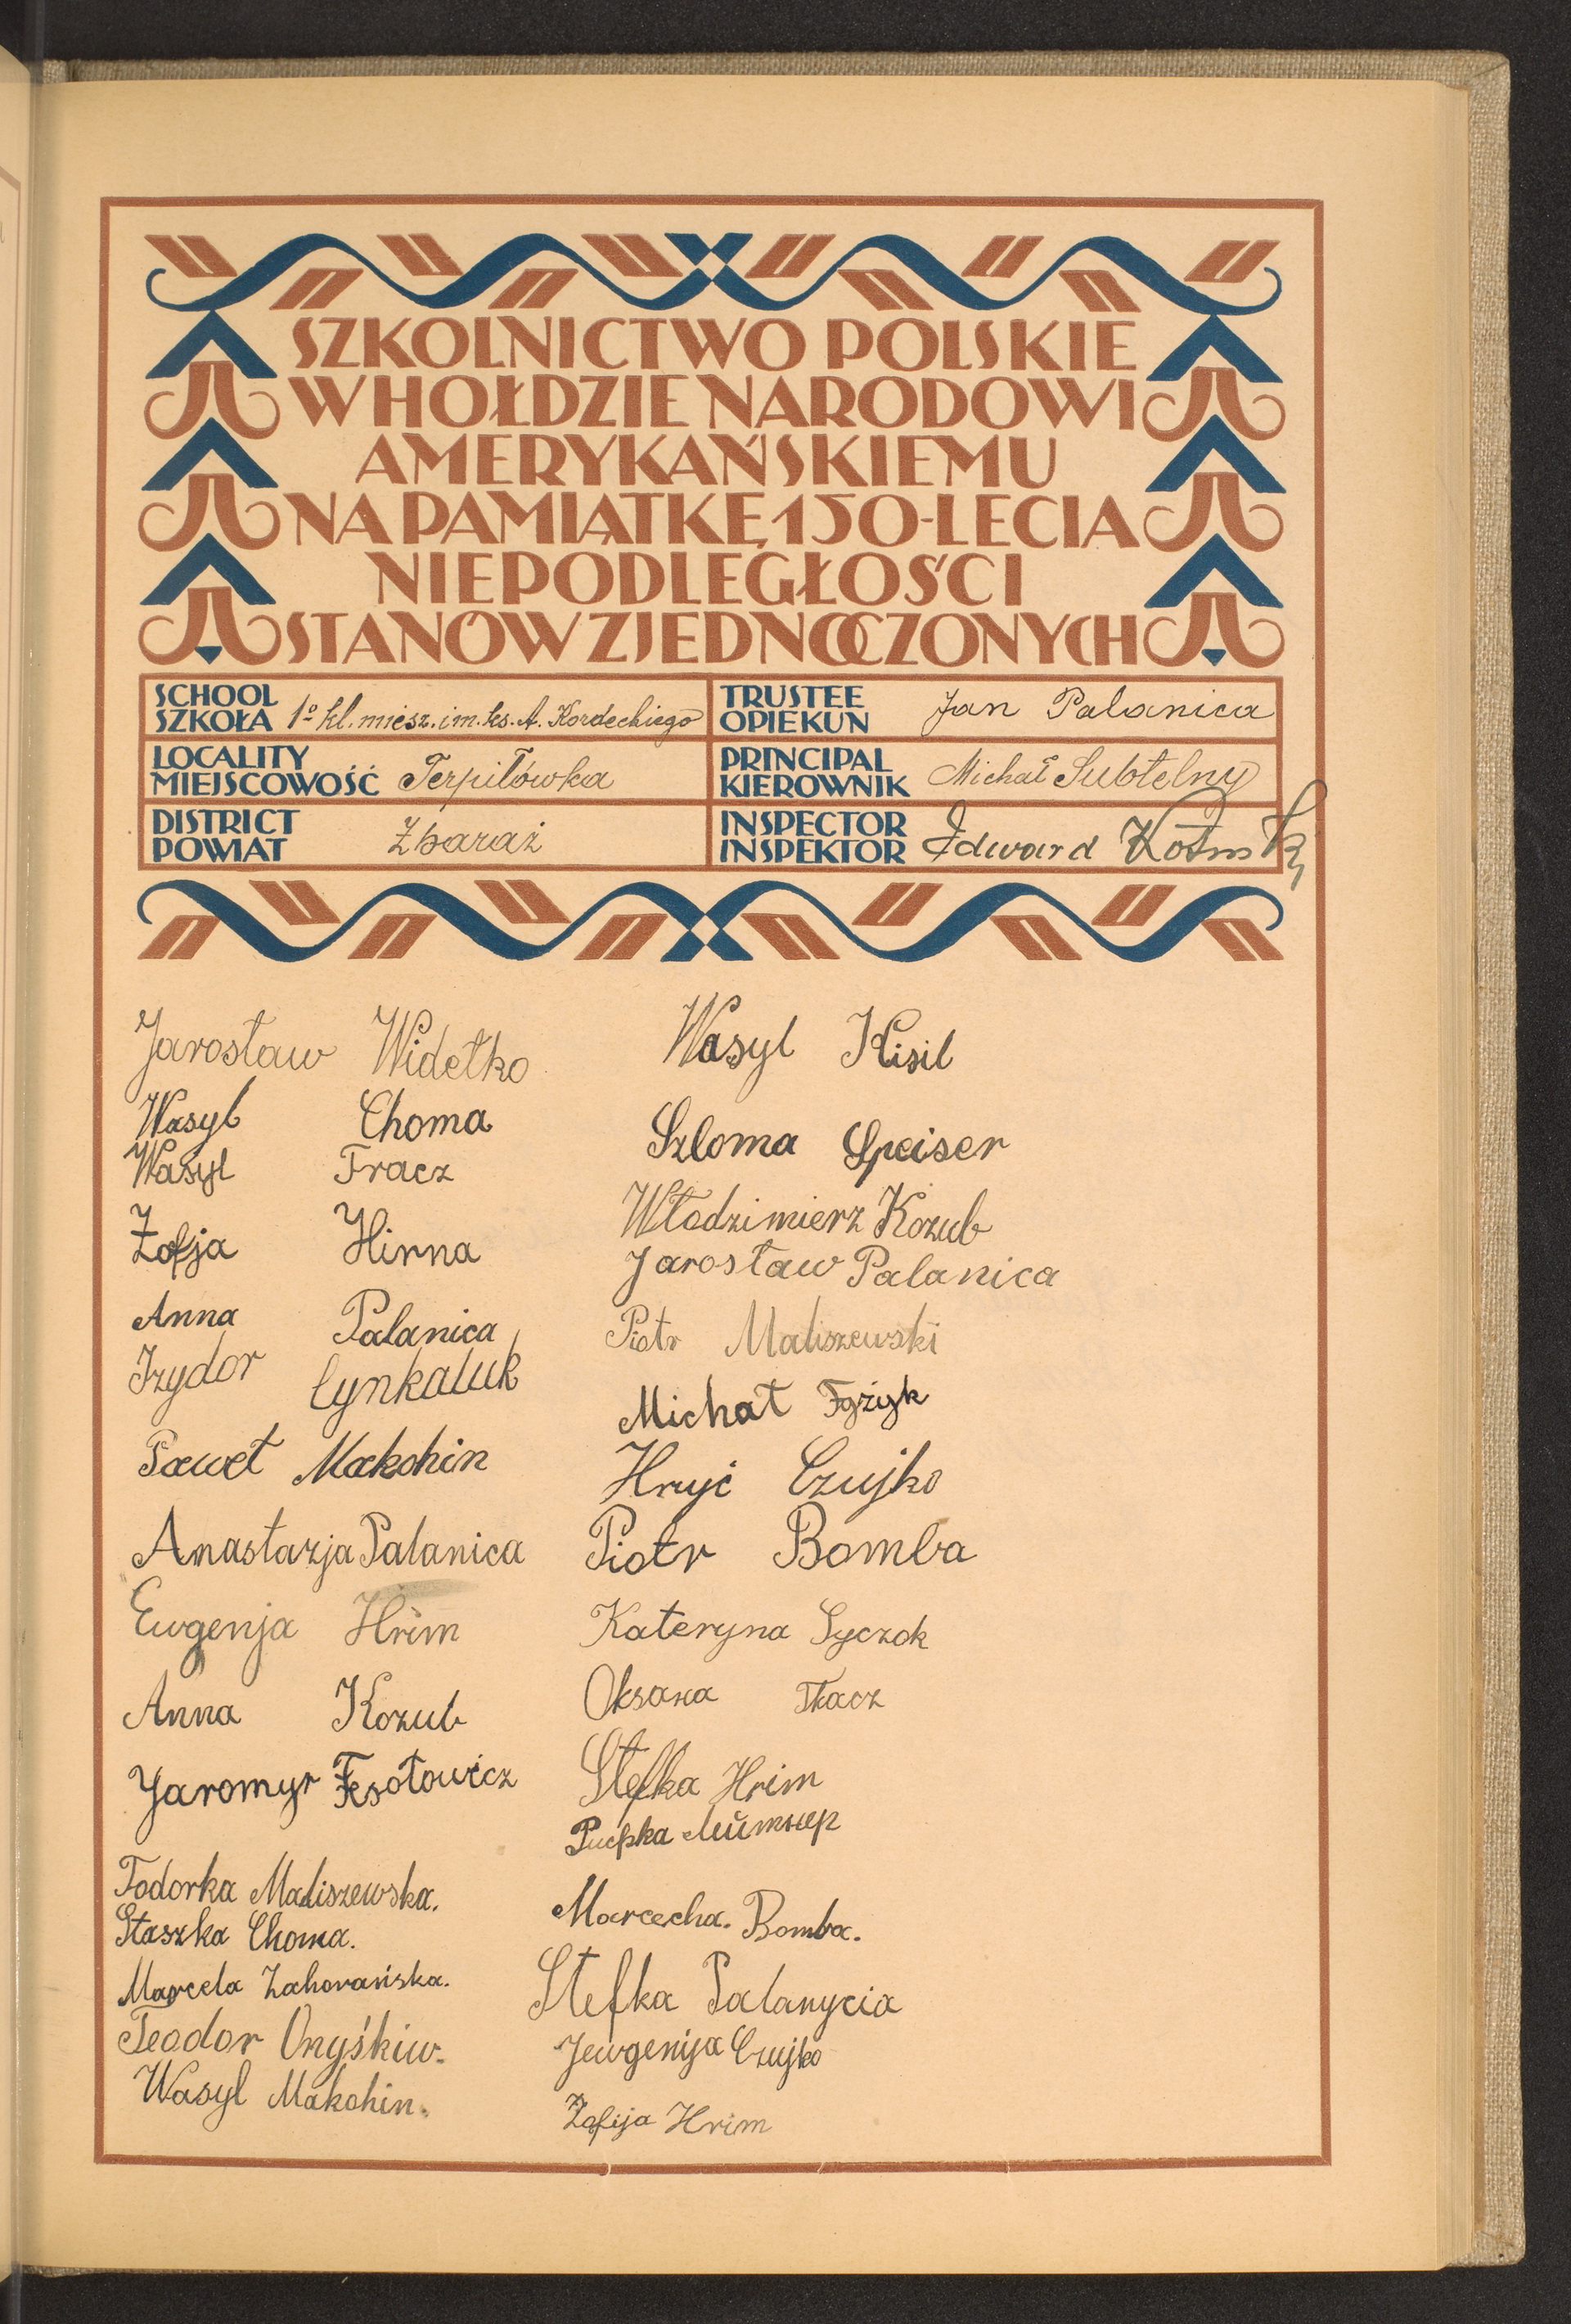 SZKOLNICTWO POLSKIE
W HOŁDZIE NARODOWI
AMERYKAŃSKIEMU
NA PAMIĄTKĘ 150-LECIA
NIEPODLEGŁOŚCI
STANÓW ZJEDNOCZONYCH
SCHOOL
SZKOŁA 1º kl. miesz. im. ks. A. Kordeckiego
TRUSTEE
OPIEKUN Jan Palanica
LOCALITY
MIEJSCOWOŚĆ Terpiłówka
PRINCIPAL
KIEROWNIK Michał Subtelny
DISTRICT
POWIAT Zbaraż
INSPECTOR
INSPEKTOR Edward
Jarosław Widełko
Wasyl Choma
Wasyl Tracz
Zofja Hirna
Anna Palanica
Izydor Cynkaluk
Paweł Makohin
Anastazja Palanica
Ewgenja Hrim
Anna Kozub
Jaromyr Fesołowicz
Todorka Maliszewska.
Staszka Choma.
Marcela Zahorańska.
Teodor Onyśkiw.
Wasyl Makohin.
Wasyl Kisil
Szloma Speiser
Włodzimierz Kozub
Jarosław Palanica
Piotr Maliszewski
Michał Fyżyk
Hryć Czujko
Piotr Bomba
Kateryna Syczok
Oksana Tkacz
Stefka Hrim
Рифка Лїйтнер
Marcecha. Bomba.
Stefka Palanycia
Jewgenija Czujko
Zofija Hrim